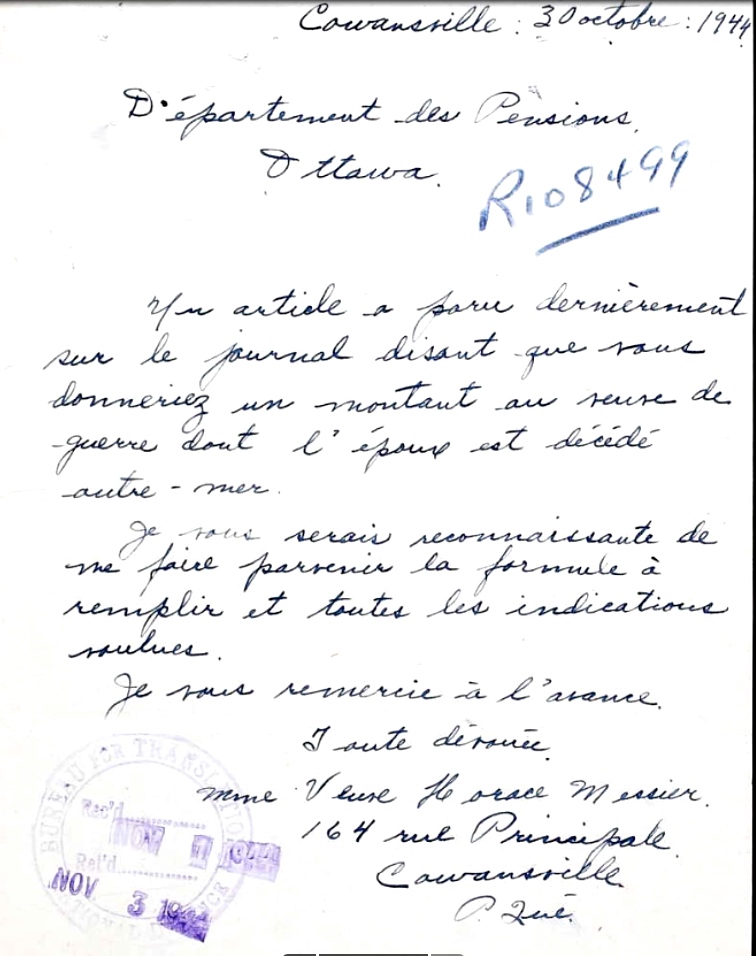 Cowansville : 30 octobre : 1944
Département des Pensions,
Ottawa.
R108499
Un article a paru dernièrement
sur le journal disant que vous
donneriez un montant au veuve de
guerre dont l'époux est décédé
outre-mer.
Je vous serais reconnaissante de
me faire parvenir la formule à
remplir et toutes les indications
voulues.
Je vous remercie à l'avance.
Toute dévouée,
Mme Veuve Horace Messier.
164 rue Principale.
Cowansville.
P. Qué.
BUREAU FOR TRANSLATIONS
Rec'd NOV 1 1944
Ret'd
NOV 3 1944
NATIONAL DEFENCE